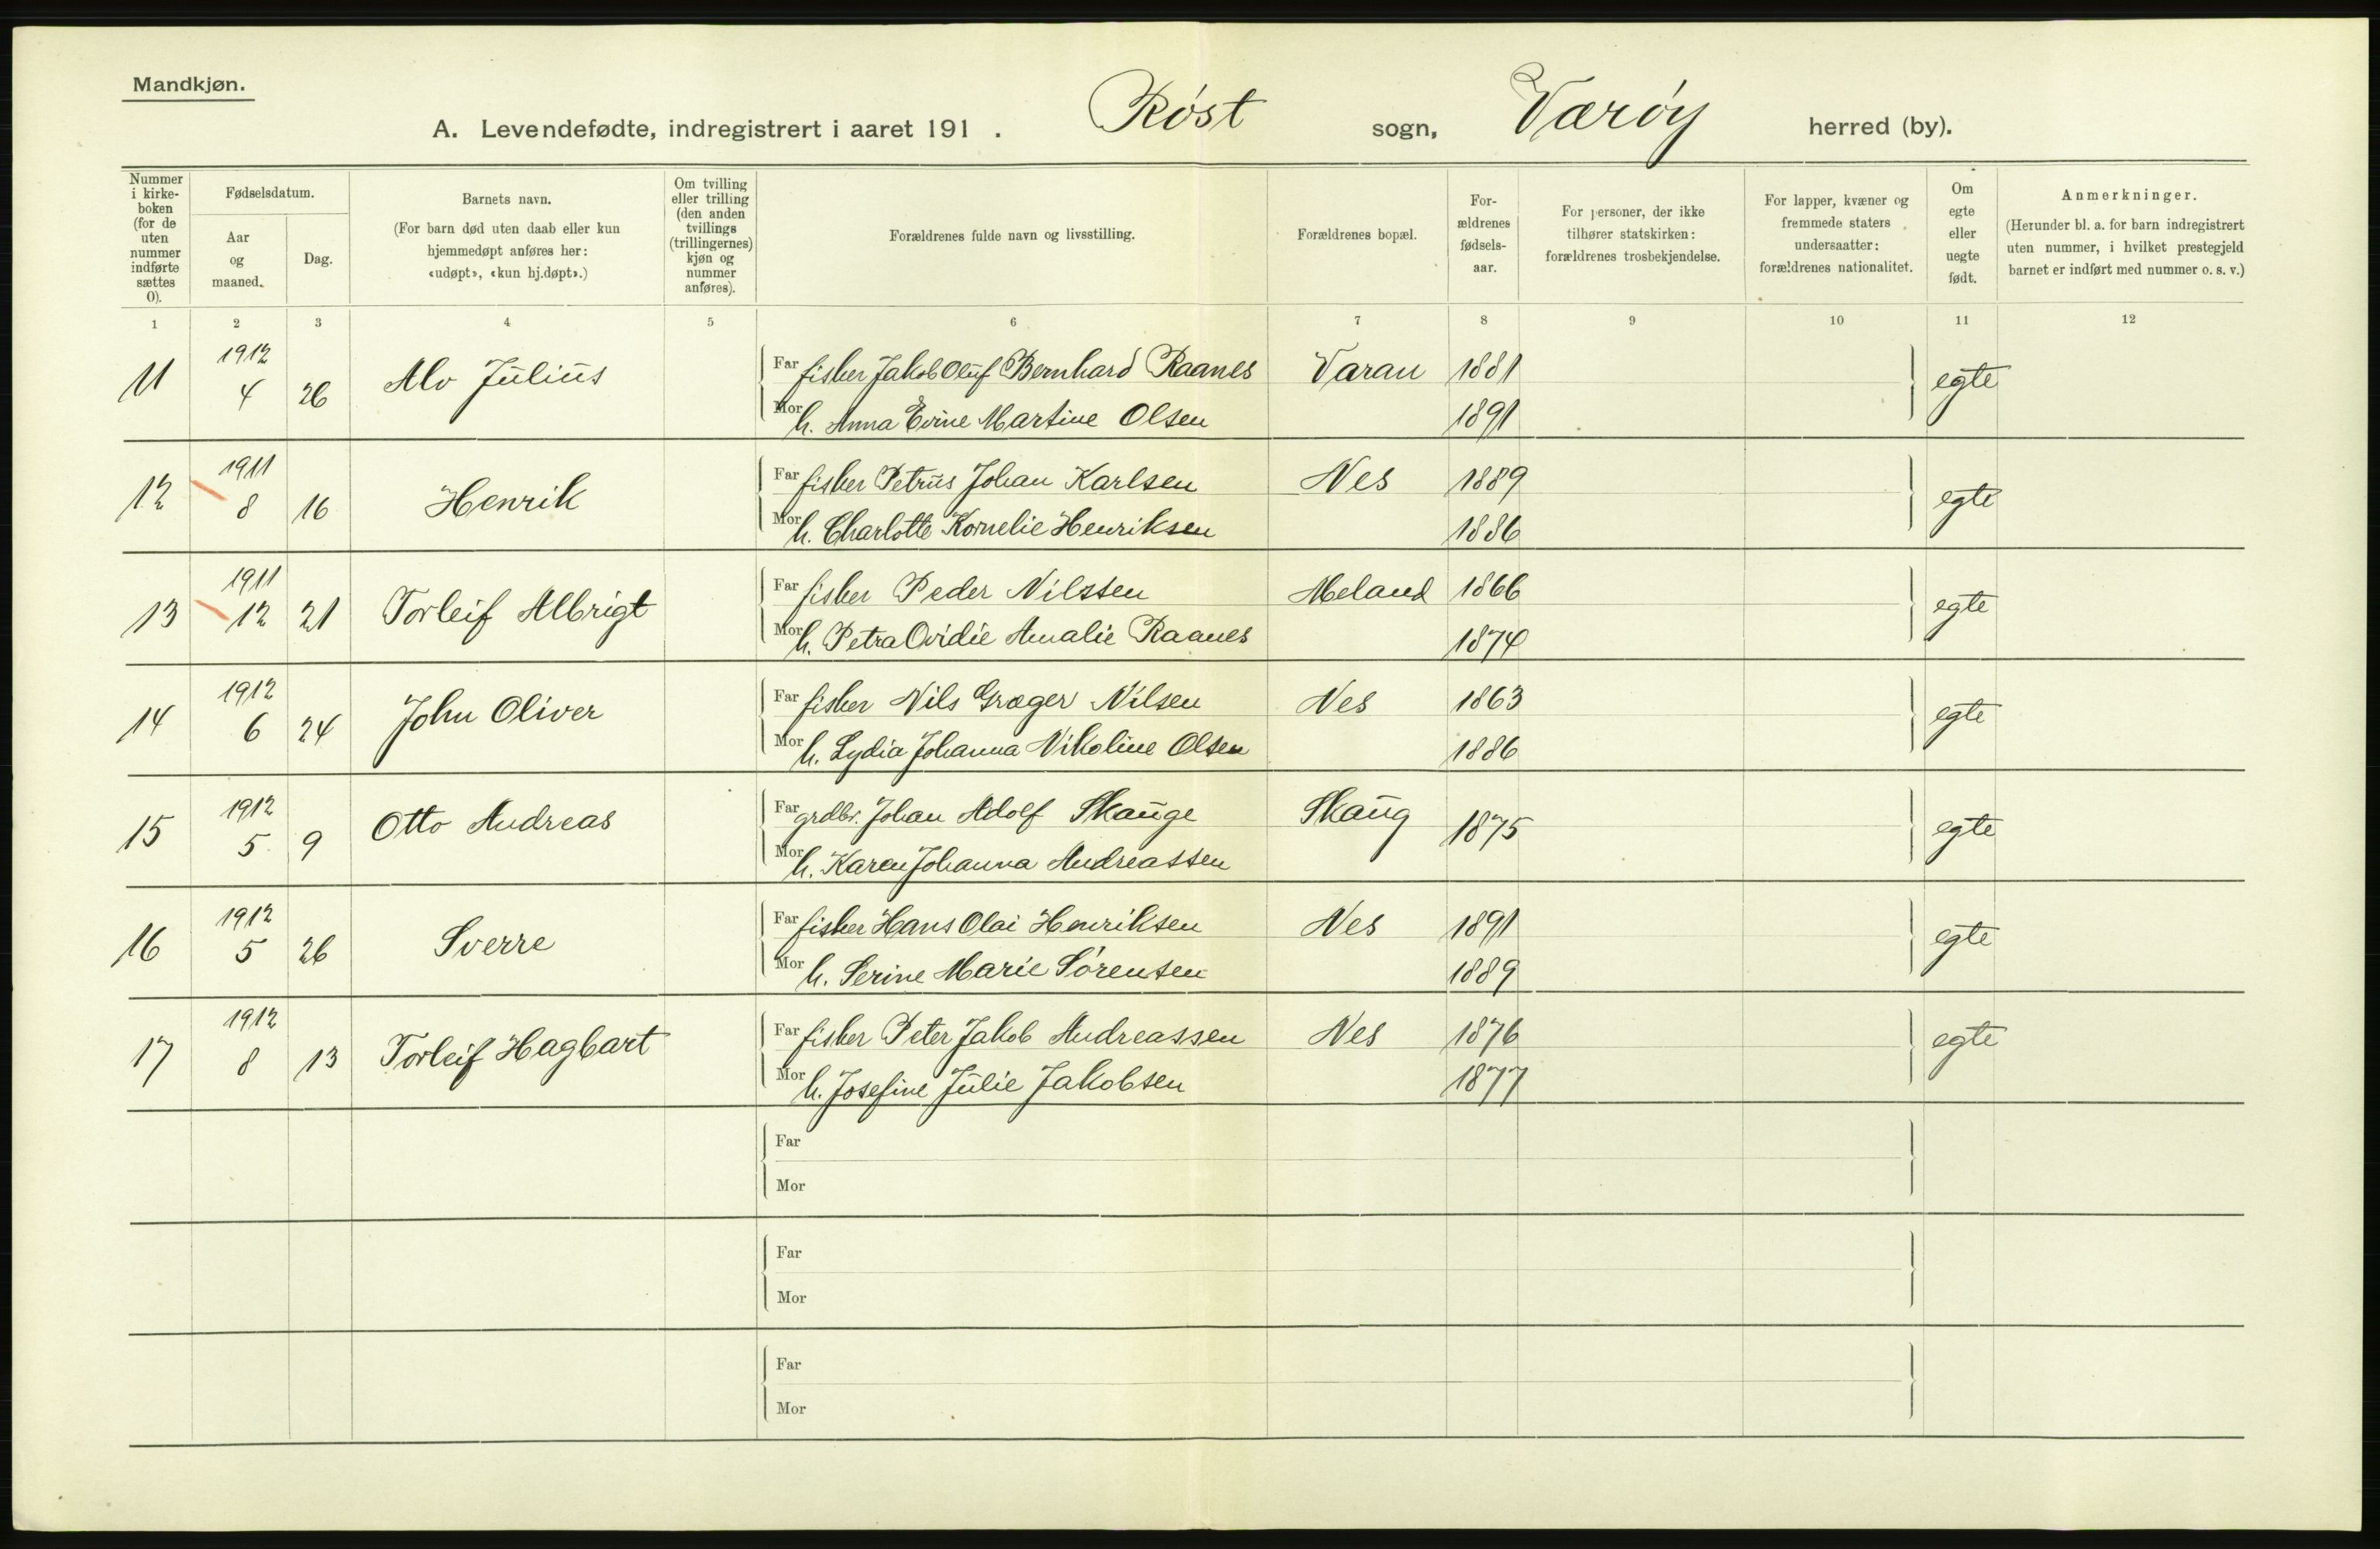 Mandkjøn.
A. Levendefødte, indregistrert i aaret 191 . Røst sogn, Værøy herred (by).
Nummer i kirke-boken (for de uten nummer indførte sættes 0).
Fødselsdatum.
Aar og maaned.
Dag.
Barnets navn.
(For barn død uten daab eller kun hjemmedøpt anføres her: «udøpt», «kun hj.døpt».)
Om tvilling eller trilling (den anden tvillings (trillingernes) kjøn og nummer anføres).
Forældrenes fulde navn og livsstilling.
Forældrenes bopæl.
For-ældrenes fødsels-aar.
For personer, der ikke tilhører statskirken: forældrenes trosbekjendelse.
For lapper, kvæner og fremmede staters undersaatter: forældrenes nationalitet.
Om egte eller uegte født.
Anmerkninger.
(Herunder bl. a. for barn indregistrert uten nummer, i hvilket prestegjeld barnet er indført med nummer o. s. v.)
1 2 3 4 5 6 7 8 9 10 11 12
11 1912 4 26 Alv Julius Far fisker Jakob Oluf Bernhard Raanes Varan 1881 egte
Mor h. Anna Evine Martine Olsen 1891
12 1911 8 16 Henrik Far fisker Petrus Johan Karlsen Nes 1889 egte
Mor h. Charlotte Kornelie Henriksen 1886
13 1911 12 21 Torleif Albrigt Far fisker Peder Nilssen Meland 1866 egte
Mor h. Petra Ovidie Amalie Raanes 1874
14 1912 6 24 John Oliver Far fisker Nils Græger Nilsen Nes 1863 egte
Mor h. Lydia Johanna Nikoline Olsen 1886
15 1912 5 9 Otto Andreas Far grdbr. Johan Adolf Skauge Skaug 1875 egte
Mor h. Karen Johanna Andreassen
16 1912 5 26 Sverre Far fisker Hans Olai Henriksen Nes 1891 egte
Mor h. Serine Marie Sørensen 1889
17 1912 8 13 Torleif Hagbart Far fisker Peter Jakob Andreassen Nes 1876 egte
Mor h. Josefine Julie Jakobsen 1877
Far
Mor
Far
Mor
Far
Mor